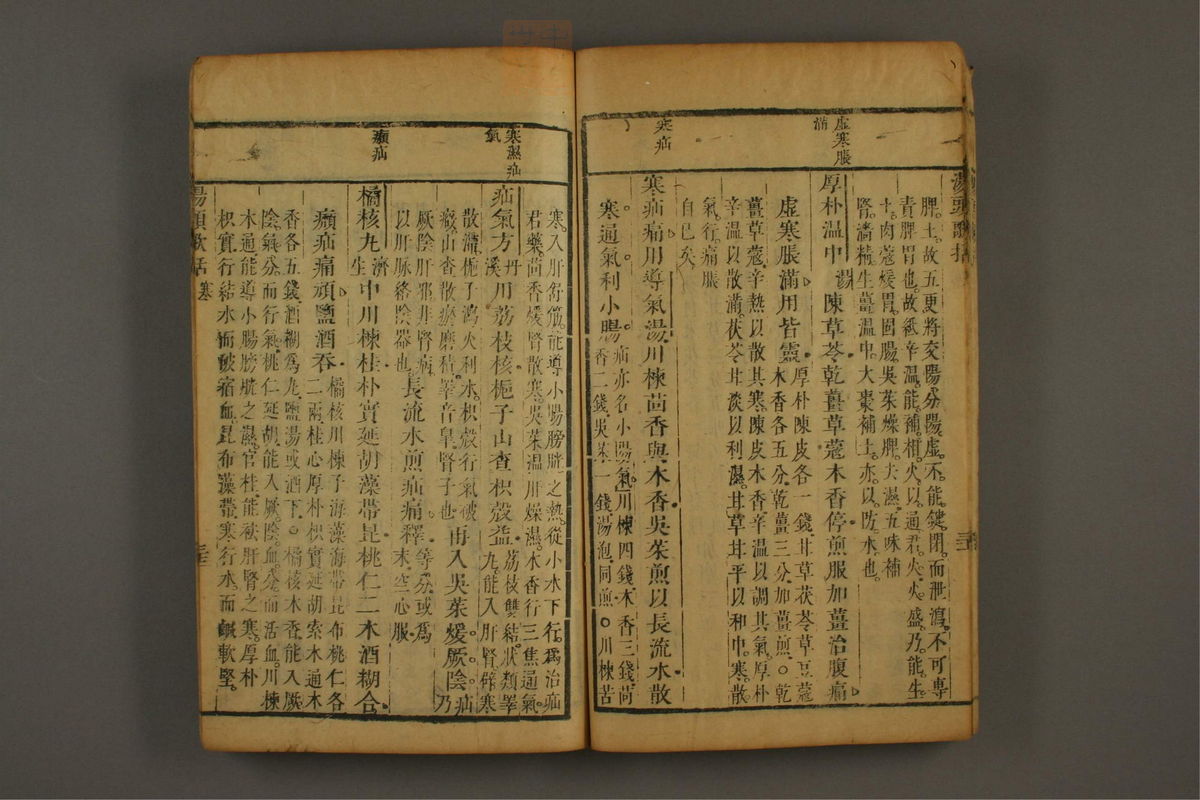 湯頭歌括
虛寒脹
滿
寒疝
脾土。故五更將交陽分。陽虛不能鍵閉。而泄瀉。不可專
責脾胃也。故紙辛溫。能補相火。以通君火。火盛乃能生
土。肉蔻煖胃固腸。吳茱燥脾去濕。五味補
腎濇精。生薑溫中。大棗補土。亦以防水也。
厚朴溫中湯陳草苓。乾薑草蔻木香停。煎服加薑治腹痛
虛寒脹滿用皆靈。
厚朴陳皮各一錢。甘草茯苓草豆蔻
木香各五分。乾薑三分。加薑煎○乾
薑草蔻。辛熱以散其寒。陳皮木香。辛溫以調其氣。厚朴
辛溫以散滿。茯苓甘淡以利濕。甘草甘平以和中。寒散
氣行。痛脹
自已矣
寒疝痛用導氣湯。川楝茴香與木香。吳茱煎以長流水。散
寒通氣利小腸。
疝亦名小腸氣。川楝四錢。木香三錢。茴
香二錢。吳茱一錢。湯泡同煎○川楝苦
寒濕疝
氣
癩疝
寒。入肝舒筋。能導小腸膀胱之熱。從小水下行。爲治疝
君藥。茴香煖腎散寒。吳茱溫肝燥濕。木香行三焦通氣
疝氣方丹溪用荔枝核。梔子山查枳殼益。
荔枝雙結。狀類睪
丸。能入肝腎。辟寒
散滯。梔子瀉火利水。枳殼行氣破
癥。山查散瘀磨積。睪音皋。腎子也
再入吳茱煖厥陰。疝乃
厥陰肝邪。非腎病。
以肝脈絡陰器也
長流水煎疝痛釋。
等分。或爲
末。空心服
橘核丸濟生中川楝桂。朴實延胡藻帶昆。桃仁二木酒糊合
癩疝痛頑鹽酒吞。
橘核川楝子海藻海帶昆布桃仁各
二兩桂心厚朴枳實延胡索木通木
香各五錢。酒糊爲丸。鹽湯或酒下○橘核木香。能入厥
陰氣分而行氣。桃仁延胡。能入厥陰血分而活血。川楝
木通。能導小腸膀胱之濕。官桂能祛肝腎之寒。厚朴
枳實。行結水而破宿血。昆布藻帶。寒行水而鹹軟堅
湯頭歌括 寒